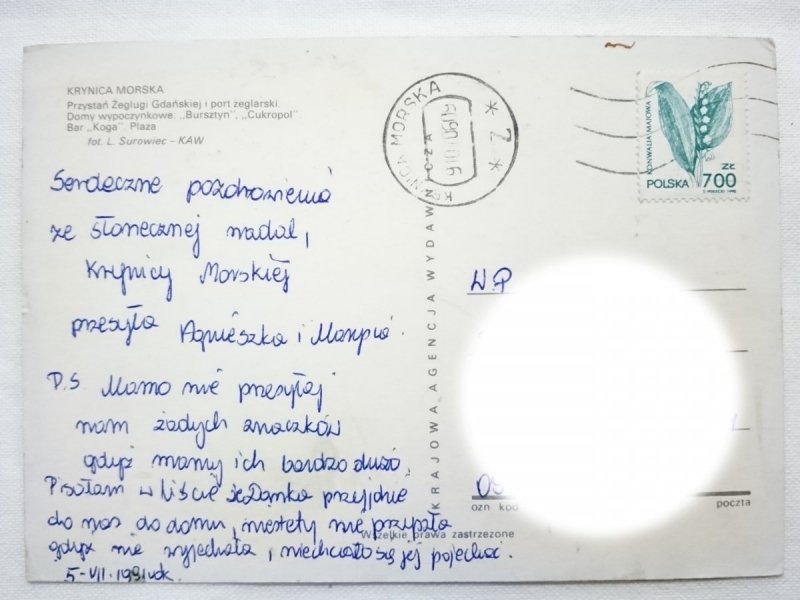 KRYNICA MORSKA
Przystań Żeglugi Gdańskiej i port żeglarski.
Domy wypoczynkowe: „Bursztyn”, „Cukropol”
Bar „Koga”. Plaża
fot. L. Surowiec – KAW
Serdeczne pozdrowienia
ze słonecznej nadal,
Krynicy Morskiej
przesyła Agnieszka i Marysia.
P.S. Mamo nie przesyłaj
nam żadych znaczków
gdyż mamy ich bardzo dużo.
Pisałam w liście że Danka przyjdnie
do nas do domu, niestety nie przyszła
gdyż nie wyjechała, niechciało się jej pojechać.
5-VII.1991rok.
KRAJOWA AGENCJA WYDAWNICZA
KRYNICA MORSKA
* 2 *
KONWALIA MAJOWA
ZŁ
POLSKA 700
W.P
poczta
Wszelkie prawa zastrzeżone